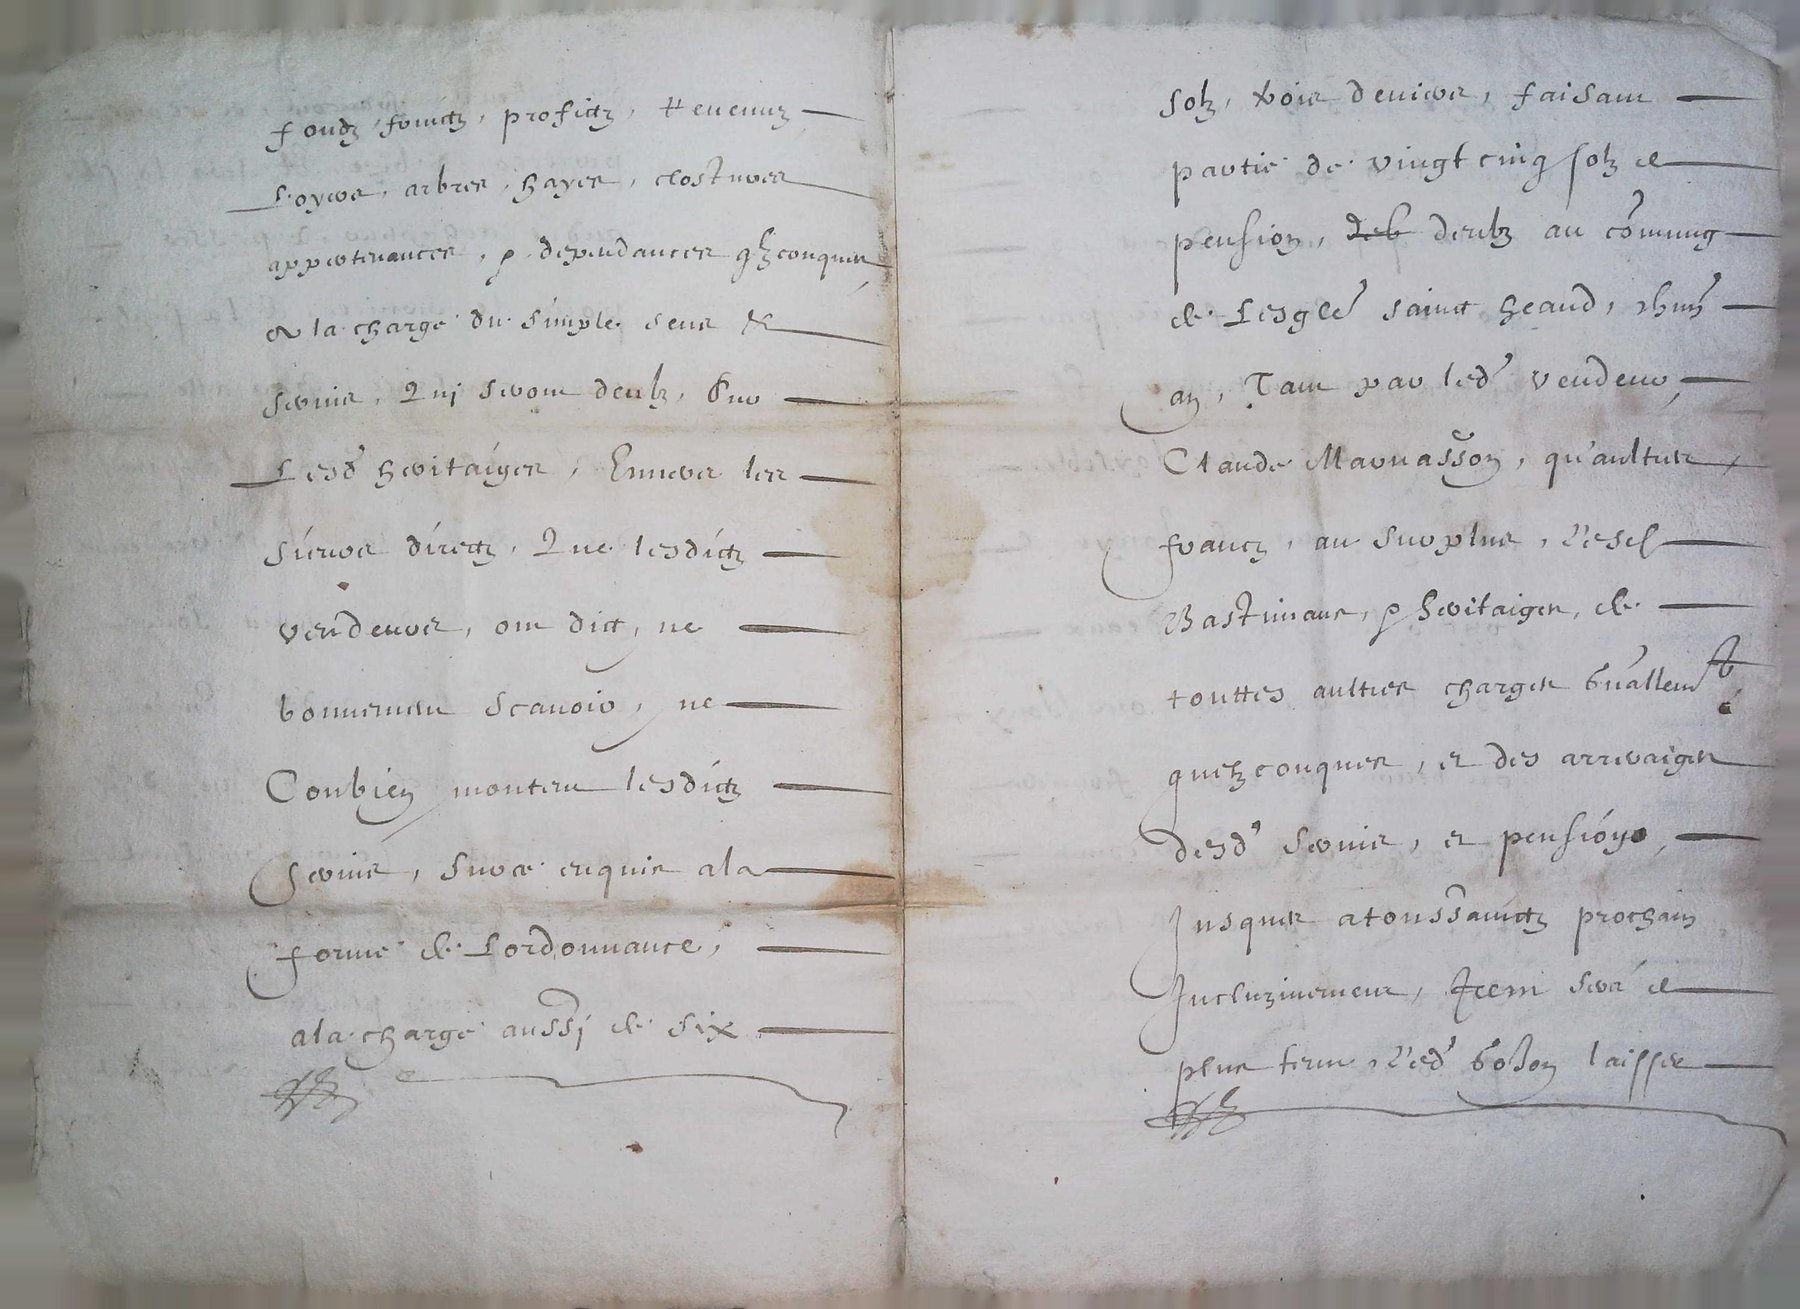 fondz fruictz, proficts, revenuz
Loyers, arbres, hayes, clostures
appertenances, & deppendances qlzconques
& a la charge du simple sens &
servis, Qui seront deubz, sur
Lesd' heritaiges, Envers les
sieurs directz, Que lesdictz
vendeurs, ont dict, ne
bonnement scavoir, ne
Combien montent lesdictz
servis, suvant enquis a la
forme de Lordonnance,
a la charge aussj de six
solz, trois deniers, faisant
partie de vingt cinq solz de
pension, deubz au comung
de Lesglē sainct heand, chūn
an, Tant par led' vendeur,
Claude Marnasson, qu'aultres
francz, au surplus, lesd
Bastimans, & heritaiges, de
touttes aultres charges
quelzconques, et des arreraiges
desd' servis, et pension,
Jusques a toussainctz prochain
Incluzivement, Item sera de
plus tenu, led' laisser